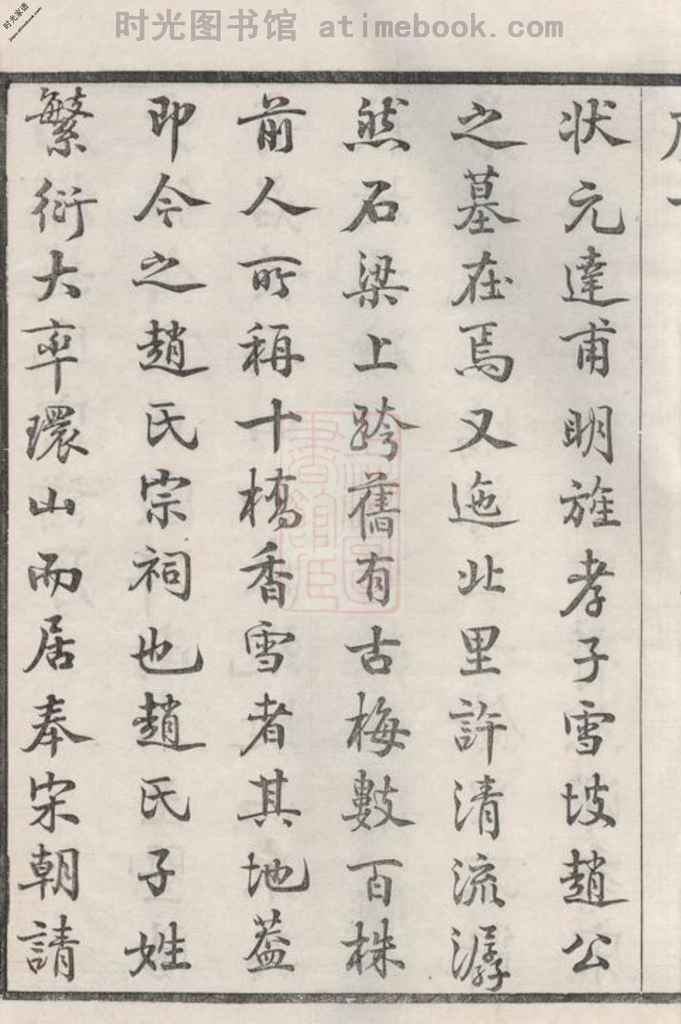 时光图书馆 atimebook.com
狀元達甫明旌孝子雪坡趙公
之墓在焉又迤北里許清流潺
然石梁上跨舊有古梅數百株
前人所稱十橋香雪者其地蓋
即今之趙氏宗祠也趙氏子姓
繁衍大率環山而居奉宋朝請